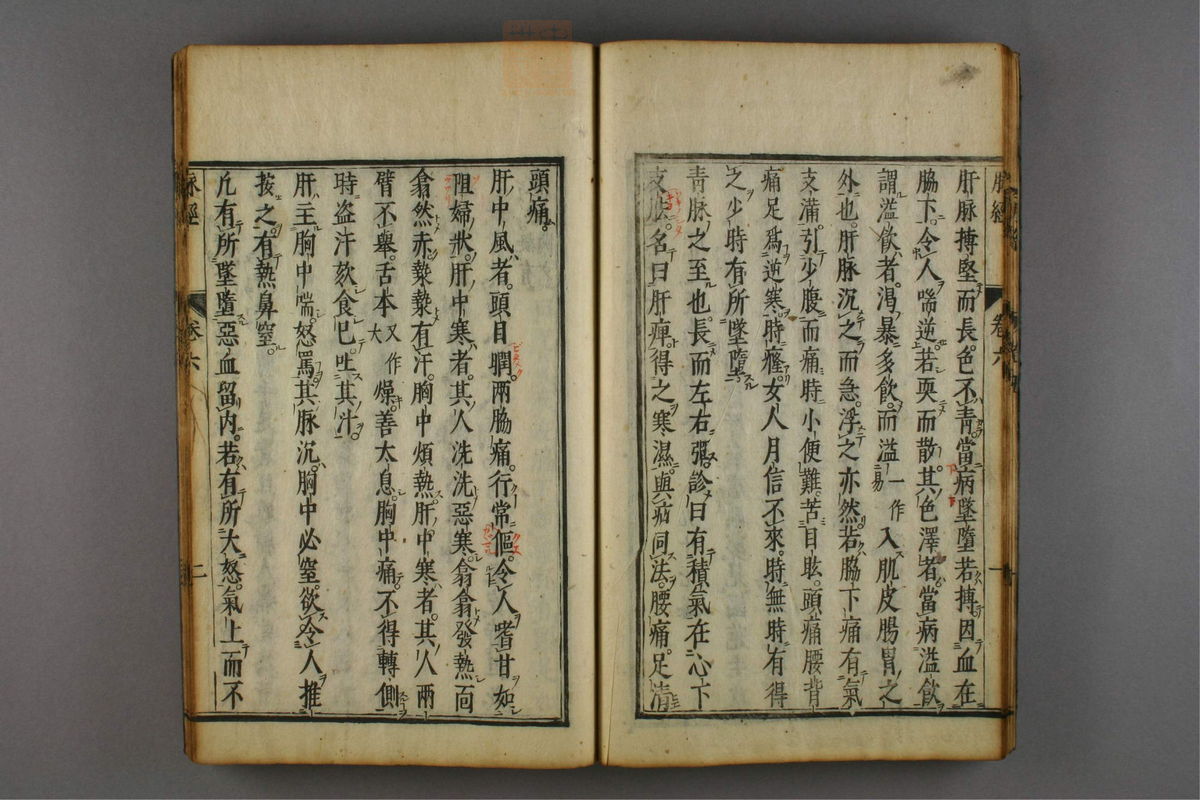 脉經
卷六
一
肝脉搏堅而長色不青當病墜墮若搏因血在
脇下令人喘逆若耎而散其色澤者當病溢飲
謂溢飲者渴暴多飲而溢一作易入肌皮腸胃之
外也肝脉沉之而急浮之亦然若脇下痛有氣
支滿引少腹而痛時小便難苦目眩頭痛腰背
痛足爲逆寒時癃女人月信不來時無時有得
之少時有所墜墮
青脉之至也長而左右彈診曰有積氣在心下
支胠名曰肝痺得之寒濕與疝同法腰痛足清
頭痛
肝中風者頭目瞤兩脇痛行常傴令人嗜甘如
阻婦狀肝中寒者其人洗洗惡寒翕翕發熱面
翕然赤漐漐有汗胸中煩熱肝中寒者其人兩
臂不舉舌本又作大燥善太息胸中痛不得轉側
時盜汗欬食已吐其汁
肝主胸中喘怒罵其脉沉胸中必窒欲令人推
按之有熱鼻窒
凡有所墜墮惡血留内若有所大怒氣上而不
脉經
卷六
二